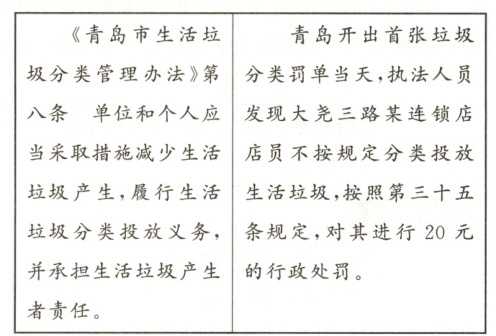 《青岛市生活垃
圾分类管理办法》第
八条　单位和个人应
当采取措施减少生活
垃圾产生，履行生活
垃圾分类投放义务，
并承担生活垃圾产生
者责任。
青岛开出首张垃圾
分类罚单当天，执法人员
发现大尧三路某连锁店
店员不按规定分类投放
生活垃圾，按照第三十五
条规定，对其进行 20 元
的行政处罚。